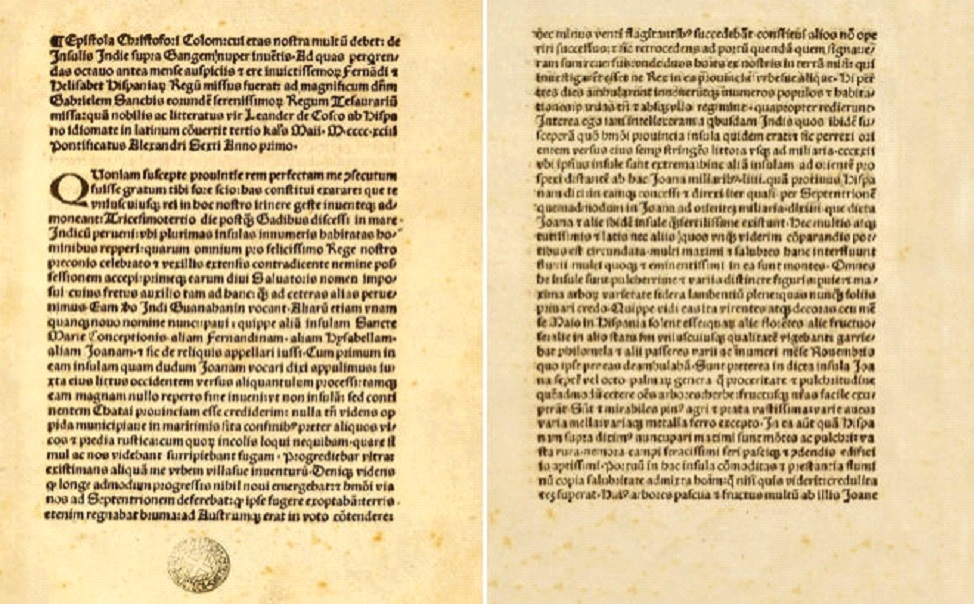 ¶Epistola Christofori Colom: cui etas nostra multũ debet: de
Insulis Indie supra Gangem nuper inuẽtis. Ad quas perqren-
das octauo antea mense auspiciis ⁊ ere inuictissimoꝝ Fernãdi ⁊
Helisabet Hispaniaꝝ Regũ missus fuerat: ad magnificum dñm
Gabrielem Sanchis eorundẽ serenissimoꝝ Regum Tesaurariũ
missa: quã nobilis ac litteratus vir Leander de Cosco ab Hispa
no idiomate in latinum cõuertit tertio kaĺs Maii. M.cccc.xciii
Pontificatus Alexandri Sexti Anno primo.
QUoniam suscepte prouintie rem perfectam me ꝯsecutum
fuisse gratum tibi fore scio: has constitui exarare: que te
vniuscuiusꝗ rei in hoc nostro itinere geste inuenteꝗ ad-
moneant: Tricesimotertio die postꝗ̃ Gadibus discessi in mare
Indicũ perueni: vbi plurimas insulas innumeris habitatas ho-
minibus repperi: quarum omnium pro felicissimo Rege nostro
preconio celebrato ⁊ vexillis extensis contradicente nemine pos-
sessionem accepi: primeꝗ earum diui Saluatoris nomen impo-
sui: cuius fretus auxilio tam ad hanc: ꝗ̃ ad ceteras alias perue-
nimus. Eam ꝟo Indi Guanahanin vocant. Aliarũ etiam vnam
quanꝗ nouo nomine nuncupaui: quippe aliã insulam Sancte
Marie Conceptionis. aliam Fernandinam. aliam Hysabellam.
aliam Joanam. ⁊ sic de reliquis appellari iussi. Cum primum in
eam insulam quam dudum Joanam vocari dixi appulimus: iu-
xta eius littus occidentem versus aliquantulum processi: tamꝗ
eam magnam nullo reperto fine inueni: vt non insulã: sed conti
nentem Chatai prouinciam esse crediderim: nulla tñ videns op
pida municipiaue in maritimis sita confinibꝰ preter aliquos vi-
cos ⁊ predia rustica: cum quoꝝ incolis loqui nequibam. quare si
mul ac nos videbant surripiebant fugam. Progrediebar vltra:
existimans aliquã me vrbem villasue inuenturũ. Deniꝗ videns
ꝙ longe admodum progressis nihil noui emergebat: ⁊ hmõi via
nos ad Septentrionem deferebat: ꝙ ipse fugere exoptabã: terris
etenim regnabat bruma: ad Austrumꝗ erat in voto cõtendere:
nec minus venti flagitantibꝰ succedebãt. constitui alios nõ ope
riri successus: ⁊ sic retrocedens ad portũ quendã quem signaue-
ram sum reuersus: vnde duos hoies ex nostris in terrã misi: qui
inuestigarẽt esset ne Rex in ea prouincia vrbesue alique. Hi per
tres dies ambularunt inueneruntꝗ innumeros populos ⁊ habita
tiones: paruas tñ ⁊ absꝗ vllo regimine. quapropter redierunt.
Interea ego iam intellexeram a quibusdam Indis quos ibidẽ su-
sceperã quõ hmõi prouincia insula quidem erat: ⁊ sic perrexi ori
entem versus eius semp stringẽs littora vsꝗ ad miliaria.cccxxii
vbi ipsius insule sunt extrema: hinc aliã insulam ad oriẽtẽ pro
spexi distantẽ ab hac Joana miliaribꝰ.liiii. quã protinus Hispa
nam dixi: in eamꝗ concessi: ⁊ direxi iter quasi per Septentrionẽ
quemadmodum in Joana ad orientẽ miliaria.dlxiiii. que dicta
Joana ⁊ alie ibidẽ insule ꝗ̃fertilissime existunt. Hec multis atꝗ
tutissimis ⁊ latis nec aliis quos vnꝗ viderim cõparandis por-
tibus est circundata. multi maximi ⁊ salubres hanc interfluunt
fluuii. multi quoꝗ ⁊ eminentissimi in ea sunt montes. Omnes
he insule sunt pulcherrime ⁊ variis distincte figuris: peruie: ma-
xima arboꝝ varietate sidera lambentiũ plene: quas nunꝗ foliis
priuari credo. Quippe vidi eas ita virentes atꝗ decoras ceu mẽ
se Maio in Hispania solent esse: quaꝝ alie florẽtes. alie fructuo-
se: alie in alio statu fm vniuscuiusꝗ qualitatẽ vigebant: garrie-
bat philomela ⁊ alii passeres varii ac innumeri mẽse Nouembris
quo ipse per eas deambulabã. Sunt preterea in dicta insula Joa
na septẽ vel octo palmaꝝ genera ꝗ proceritate ⁊ pulchritudine
quẽadmodũ cetere oẽs arbores: herbe: fructusꝗ nr̃as facile exu-
perãt. Sũt ⁊ mirabiles pinꝰ agri ⁊ prata vastissima: varie aues
varia mella: variaꝗ metalla ferro excepto. In ea aũt quã Hispa
nam supra diximꝰ nuncupari maximi sunt mõtes ac pulchri: va
sta rura. nemora. campi feracissimi seri pasciꝗ ⁊ ꝯdendis edifici
is aptissimi. Portuũ in hac insula cõmoditas ⁊ prestantia flumi
nũ copia salubritate admixta hoim̃: ꝙ nisi quis viderit: credulita
tez superat. Huiꝰ arbores pascua ⁊ fructus multũ ab illis Joane